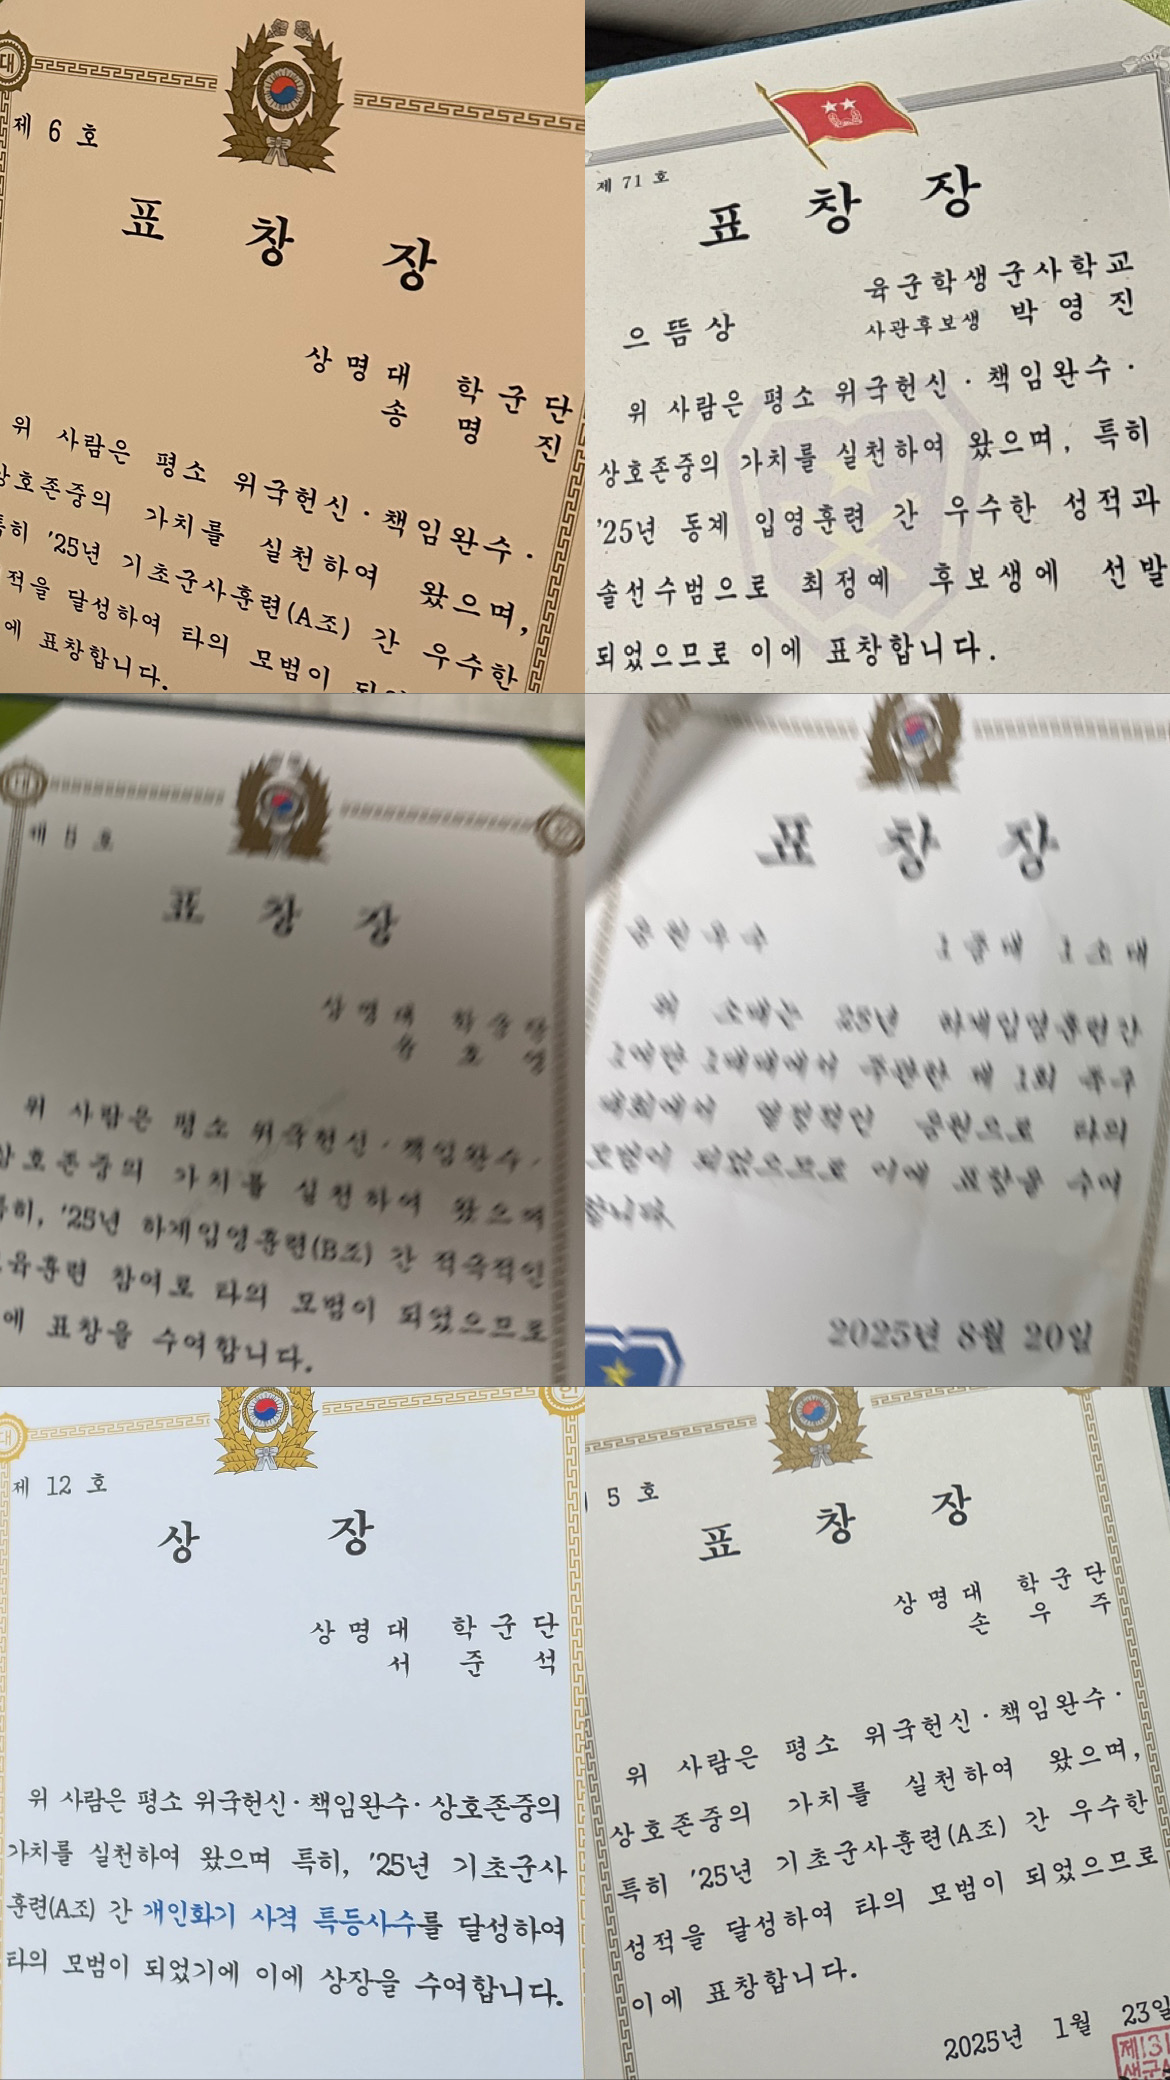 대
제 6 호
표 창 장
상명대 학군단
송 명 진
위 사람은 평소 위국헌신·책임완수·
상호존중의 가치를 실천하여 왔으며,
특히 '25년 기초군사훈련(A조) 간 우수한
적을 달성하여 타의 모범이 되
에 표창합니다.
제 71 호
표 창 장
육군학생군사학교
으뜸상 사관후보생 박 영 진
위 사람은 평소 위국헌신·책임완수·
상호존중의 가치를 실천하여 왔으며, 특히
'25년 동계 입영훈련 간 우수한 성적과
솔선수범으로 최정예 후보생에 선발
되었으므로 이에 표창합니다.
대
제 호
표 창 장
상명대 학군단
위 사람은 평소 위국헌신·책임완수·
상호존중의 가치를 실천하여 왔으며
특히, '25년 하계입영훈련(B조) 간 적극적인
육훈련 참여로 타의 모범이 되었으므로
에 표창을 수여합니다.
표 창 장
응원우수 1중대 1소대
위 소대는 25년 하계입영훈련간
주관한 제 1회
대회에서 열정적인 응원으로 타의
모범이 되었으므로 이에 표창을 수여
합니다.
2025년 8월 20일
대
제 12 호
상 장
상명대 학군단
서 준 석
위 사람은 평소 위국헌신·책임완수·상호존중의
가치를 실천하여 왔으며 특히, '25년 기초군사
훈련(A조) 간 개인화기 사격 특등사수를 달성하여
타의 모범이 되었기에 이에 상장을 수여합니다.
5 호
표 창 장
상명대 학군단
손 우 주
위 사람은 평소 위국헌신·책임완수·
상호존중의 가치를 실천하여 왔으며,
특히 '25년 기초군사훈련(A조) 간 우수한
성적을 달성하여 타의 모범이 되었으므로
이에 표창합니다.
2025년 1월 23일
제131